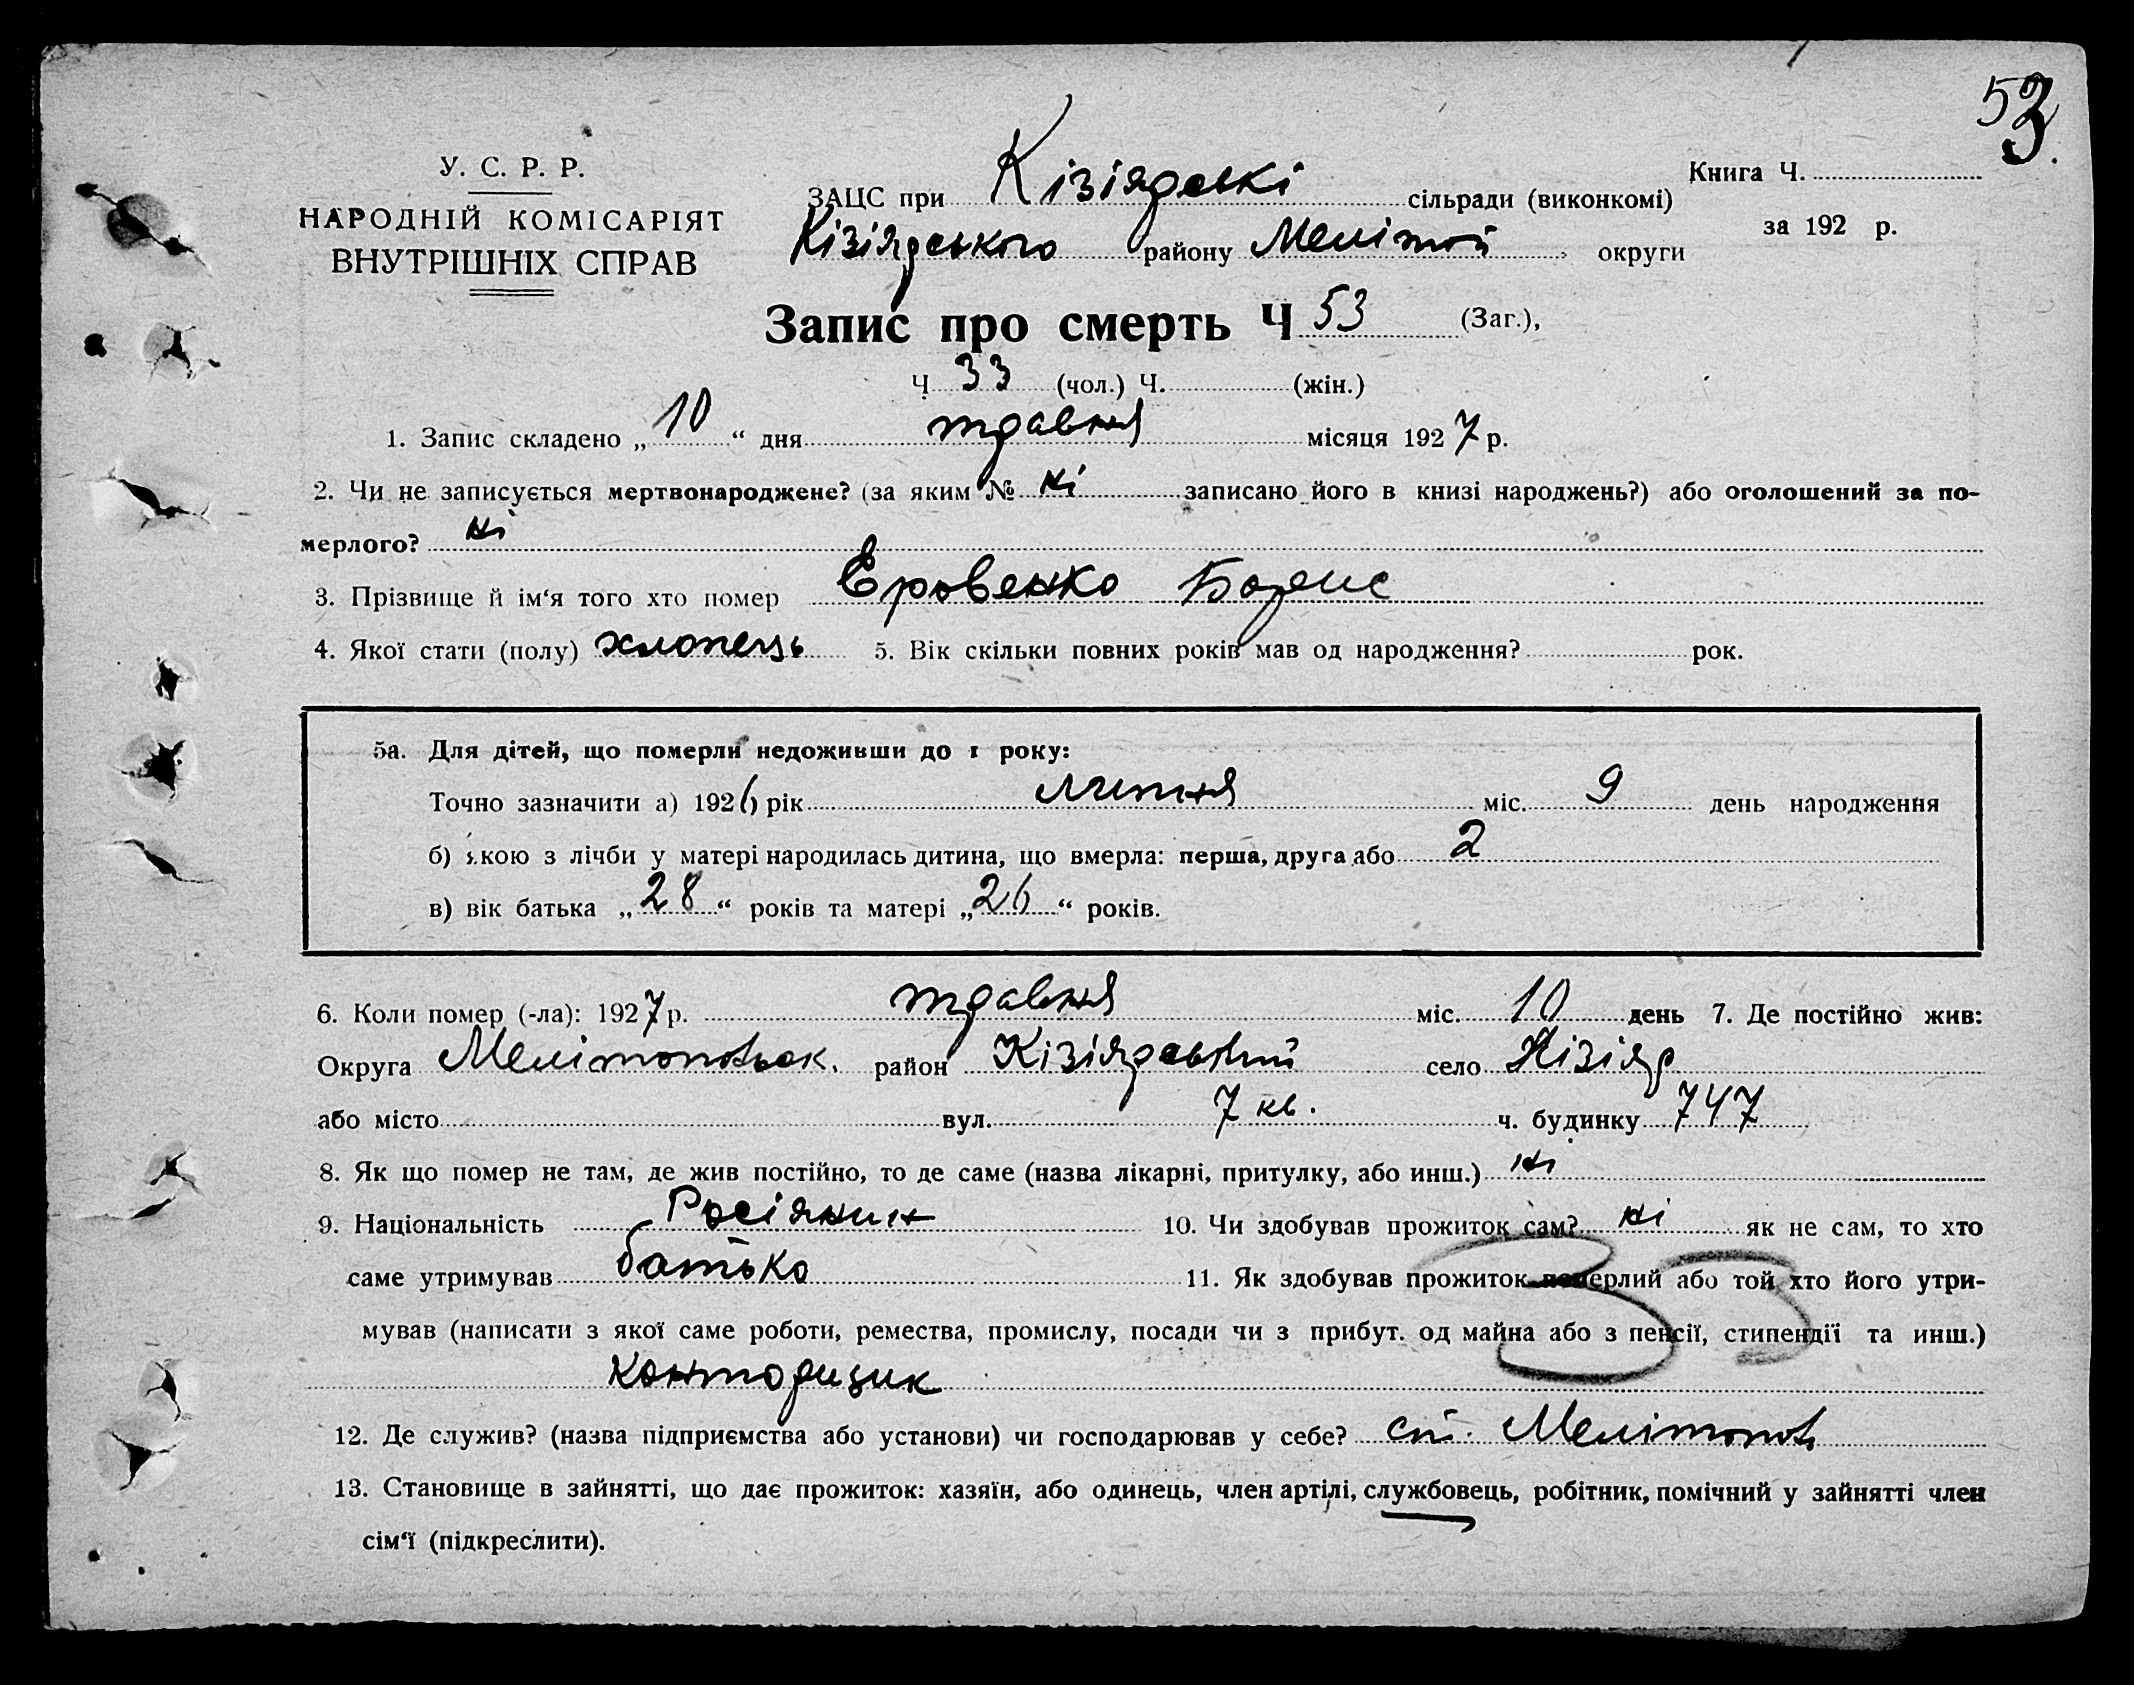 53.
У. С. Р. Р.
НАРОДНІЙ КОМІСАРІЯТ
ВНУТРІШНІХ СПРАВ
ЗАЦС при Кізіярські сільради (виконкомі)
Кізіярського району Мелітоп округи
Книга Ч.
за 192 р.
Запис про смерть Ч 53 (Заг.),
Ч 33 (чол.) Ч. (жін.)
1. Запис складено „ 10 “ дня травня місяця 1927 р.
2. Чи не записується мертвонароджене? (за яким № ні записано його в книзі народжень?) або оголошений за по-
мерлого? ні
3. Прізвище й ім‘я того хто помер Еровенко Борис
4. Якої стати (полу) хлопець 5. Вік скільки повних років мав од народження? рок.
5а. Для дітей, що померли недоживши до 1 року:
Точно зазначити а) 1926 рік липня міс. 9 день народження
б) якою з лічби у матері народилась дитина, що вмерла: перша, друга або 2
в) вік батька „ 28 “ років та матері „ 26 “ років.
6. Коли помер (-ла): 1927 р. травня міс. 10 день 7. Де постійно жив:
Округа Мелітопольск. район Кізіярський село Кізіяр
або місто вул. 7 кв. ч. будинку 747
8. Як що помер не там, де жив постійно, то де саме (назва лікарні, притулку, або инш.) ні
9. Національність Росіянин 10. Чи здобував прожиток сам? ні як не сам, то хто
саме утримував батько 11. Як здобував прожиток померлий або той хто його утри-
мував (написати з якої саме роботи, ремества, промислу, посади чи з прибут. од майна або з пенсії, стипендії та инш.)
33
Конторщик
12. Де служив? (назва підприємства або установи) чи господарював у себе? ст. Мелітополь
13. Становище в зайнятті, що дає прожиток: хазяїн, або одинець, член артілі, службовець, робітник, помічний у зайнятті член
сім‘ї (підкреслити).